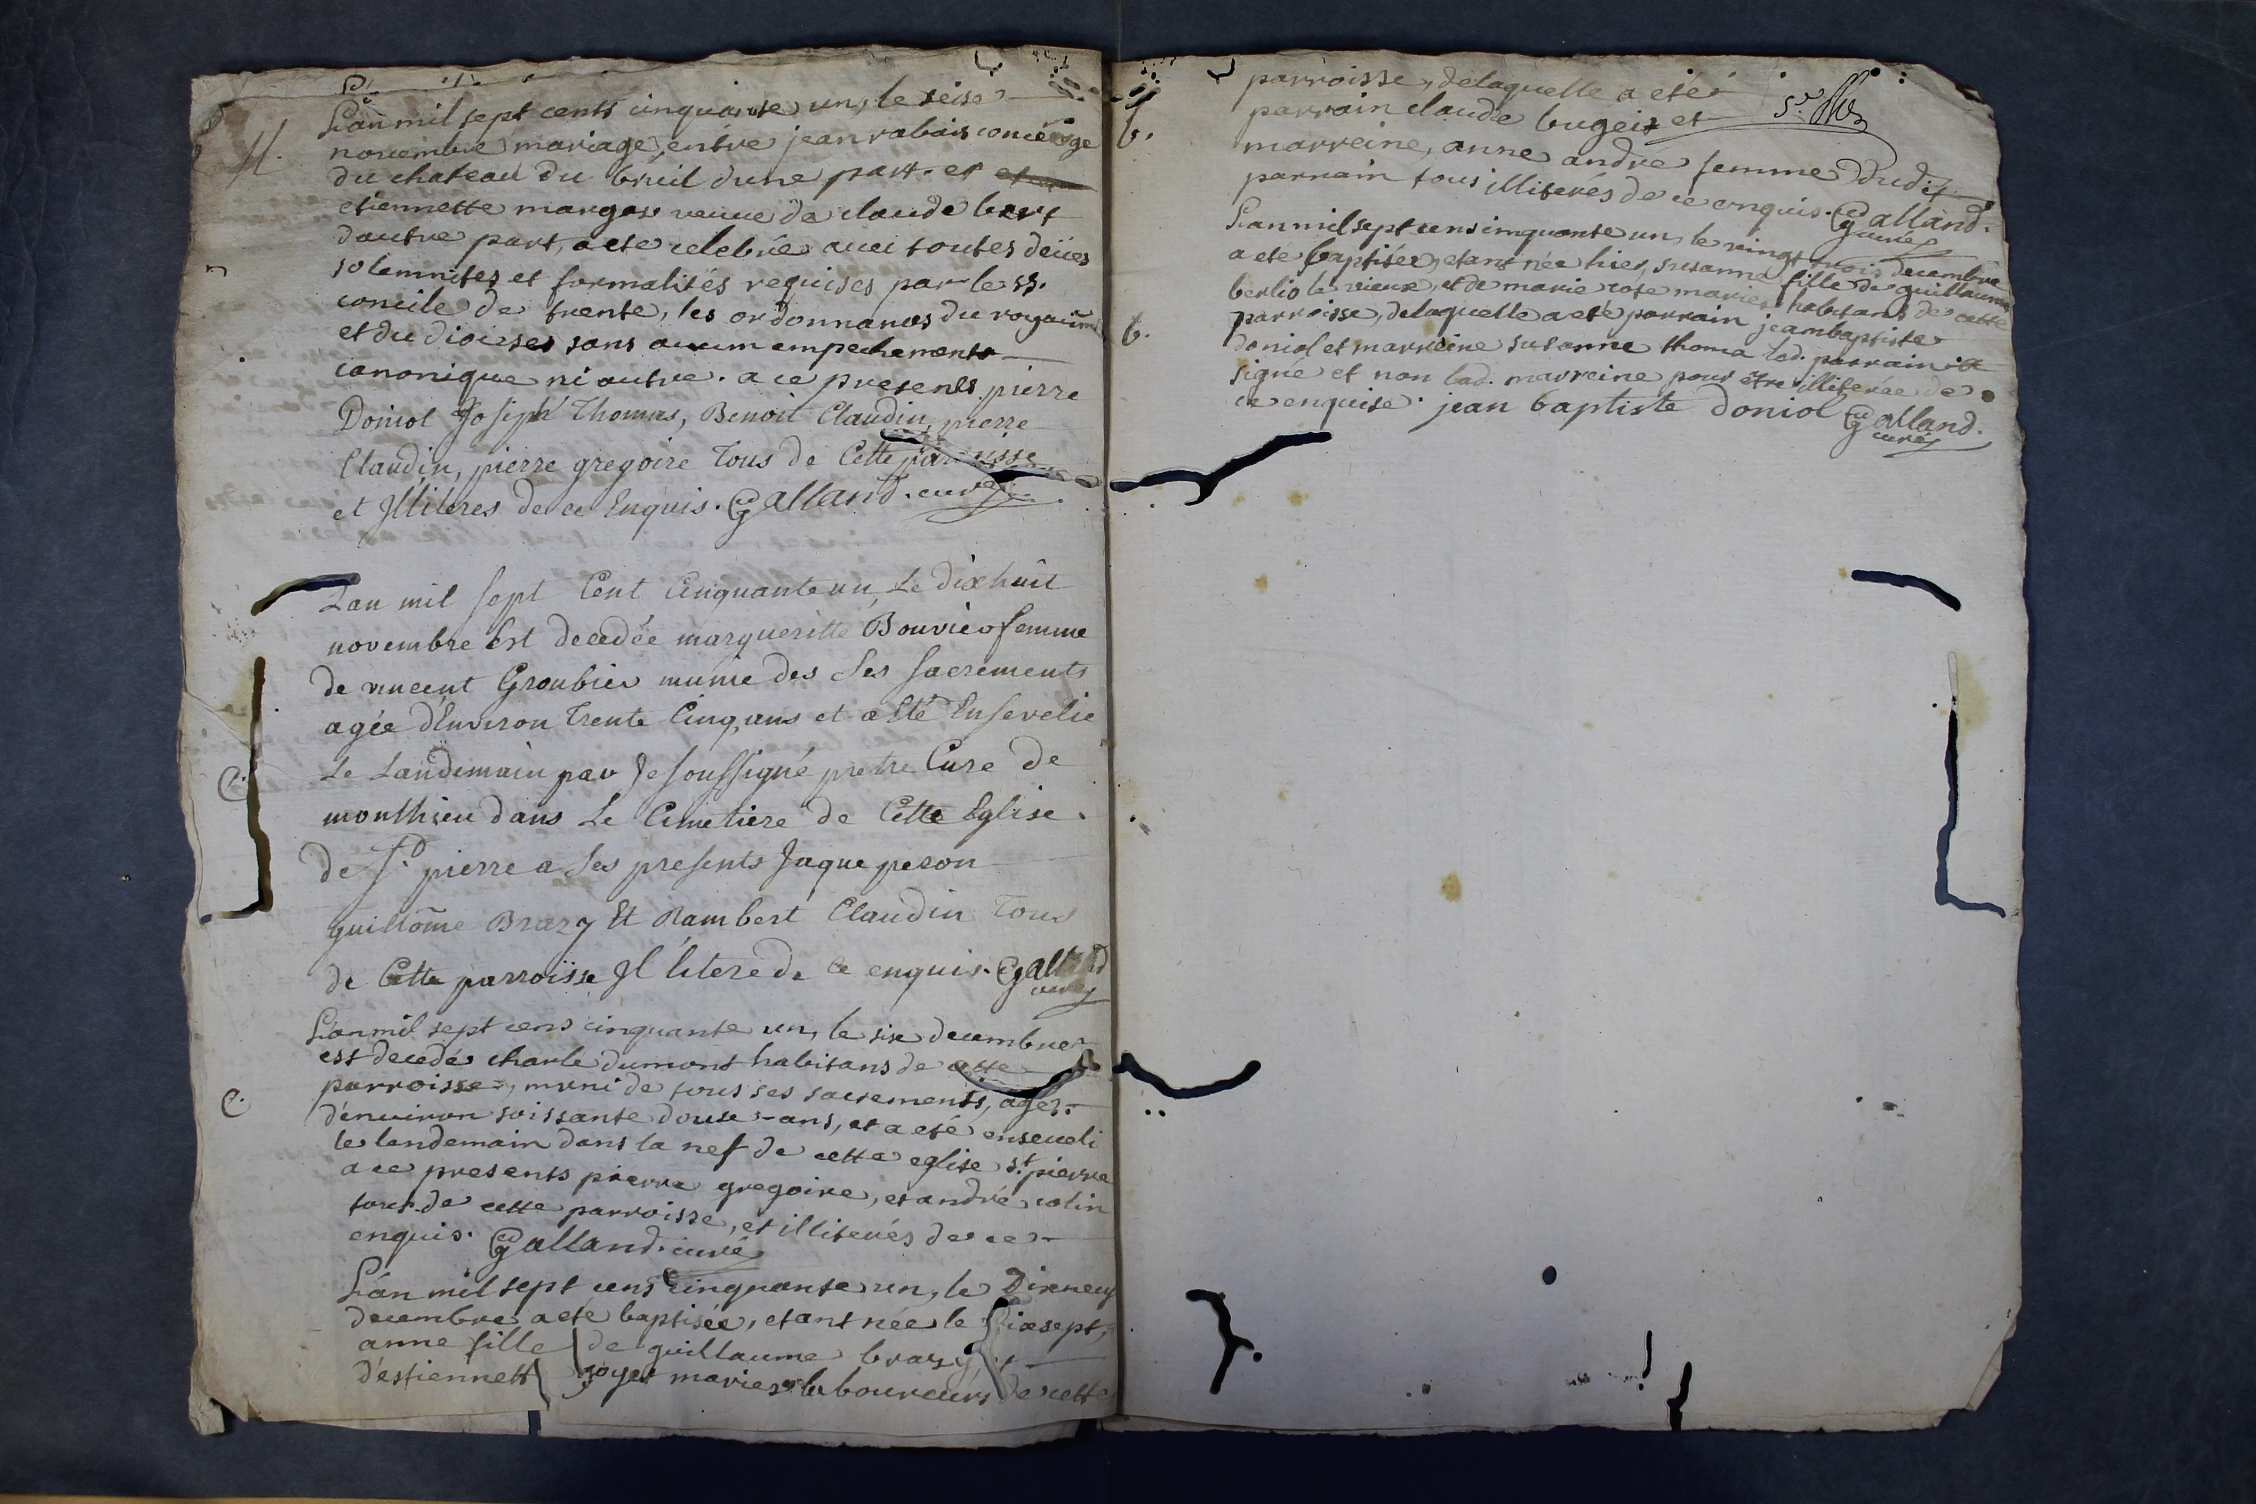 M.
L'an mil sept cents cinquante un, le seise
novembre mariage, entre jean rabais concierge
du chateau du breüil d'une part. et
etiennette margos veuve de claude bert
dautre part, a eté celebrée avec toutes deües
solemnites et formalités requises par le st.
concile de trente, les ordonnances du royaûme
et du dioicses sans aucum empechements
canonique ni autre. a ce presents pierre
Doniol Joseph Thomas, Benoit Claudin, pierre
Claudin, pierre gregoire Tous de Cette parroisse
et Illiteres de ce Enquis. Galland. curé
Lan mil sept Cent Cinquante un, Le dixhuit
novembre Est decedée margueritte Bouvier femme
de vincent Groubier munie des Ses Sacrements
agée d'Environ Trente Cinq ans et a Eté Ensevelie
C.
Le Landemain par Je soussigné pretre Cure de
monthieu dans Le Cimetiere de Cette Eglise.
de St. pierre a Ses presents Jaque peron
guillôme Brazy Et Rambert Claudin Tous
de Cette parroïsse Il litere de ce enquis. Galland
curé
L'an mil sept cens cinquante un, le six decembre
est decedé charle dumont habitans de cette
C.
parroisse, muni de tous ses sacrements, agé
d'environ soissante douse ans, et a eté enseveli
le landemain dans la nef de cette eglise st. pierre
a ce presents pierre gregoire, et andré colin
tous de cette parroisse, et illiterés de ce
enquis. Galland. curé
L'an mil sept cens cinquante un, le Dixneuf
decembre a eté baptisée, etant née le Dixsept,
anne fille de guillaume brazy et
d'estiennette goyet mariés laboureurs de cette
parroisse, de laquelle a eté
b.
parrain claude bugeis et
marreine, anne andre femme dudit
parrain tous illiterés de ce enquis. Galland.
curé
L'an mil sept cens cinquante un, le vingt trois decembre
a eté baptisée, etant née hier, susanne fille de guillaume
berlio le vieux, et de marie rose mariés habitans de cette
b.
parroisse, de laquelle a eté parrain jeanbaptiste
doniol et marreine susanne thoma led. parrain a
signé et non lad. marreine pour être illiterée de
ce enquise. jean baptiste doniol Galland.
curé